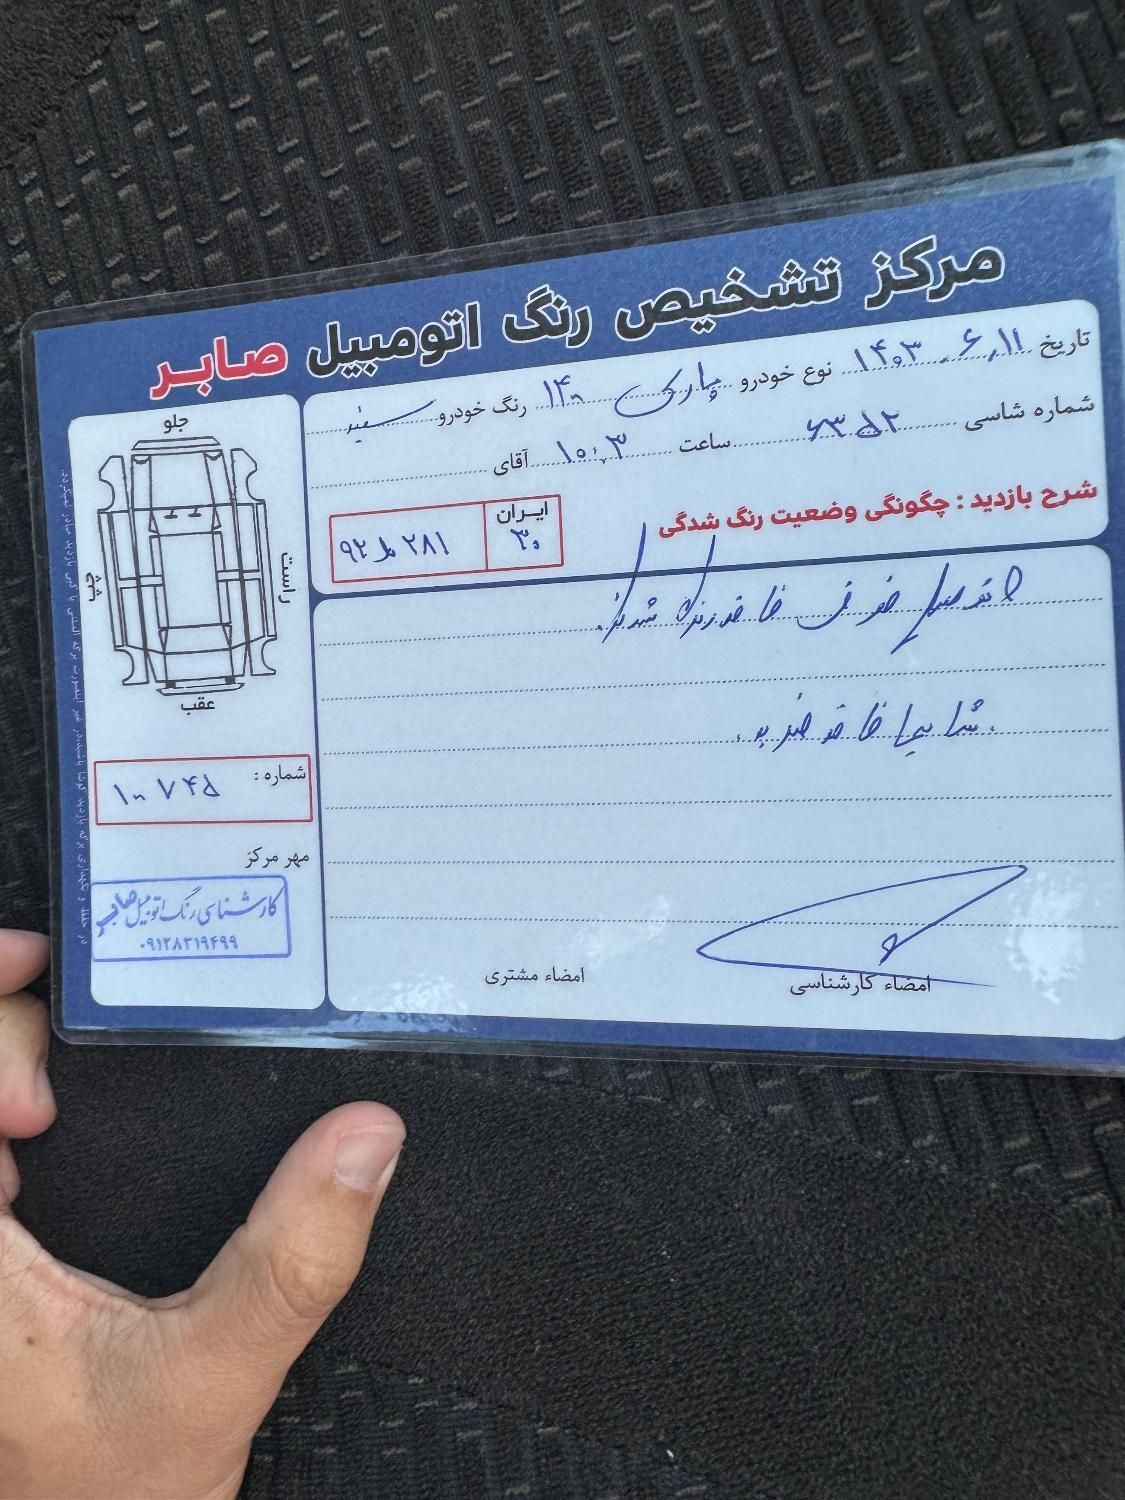 مرکز تشخیص رنگ اتومبیل صابر
تاریخ ۱۴۰۳.۶.۱۱ نوع خودرو پارس ۱۴۰۰ رنگ خودرو سفید
شماره شاسی ۶۳۵۲ ساعت ۱۰:۳۰ آقای
شرح بازدید : چگونگی وضعیت رنگ شدگی
ایران
۳۰
۹۲ ۲۸۱
اتومبیل فوق فاقد رنگ شدگی
شاسیها فاقد ضربه
جلو
راست
چپ
عقب
شماره : ۱۰۰۷۴۵
مهر مرکز
کارشناسی رنگ اتومبیل صابر
۰۹۱۲۸۳۱۹۴۹۹
امضاء کارشناسی
امضاء مشتری